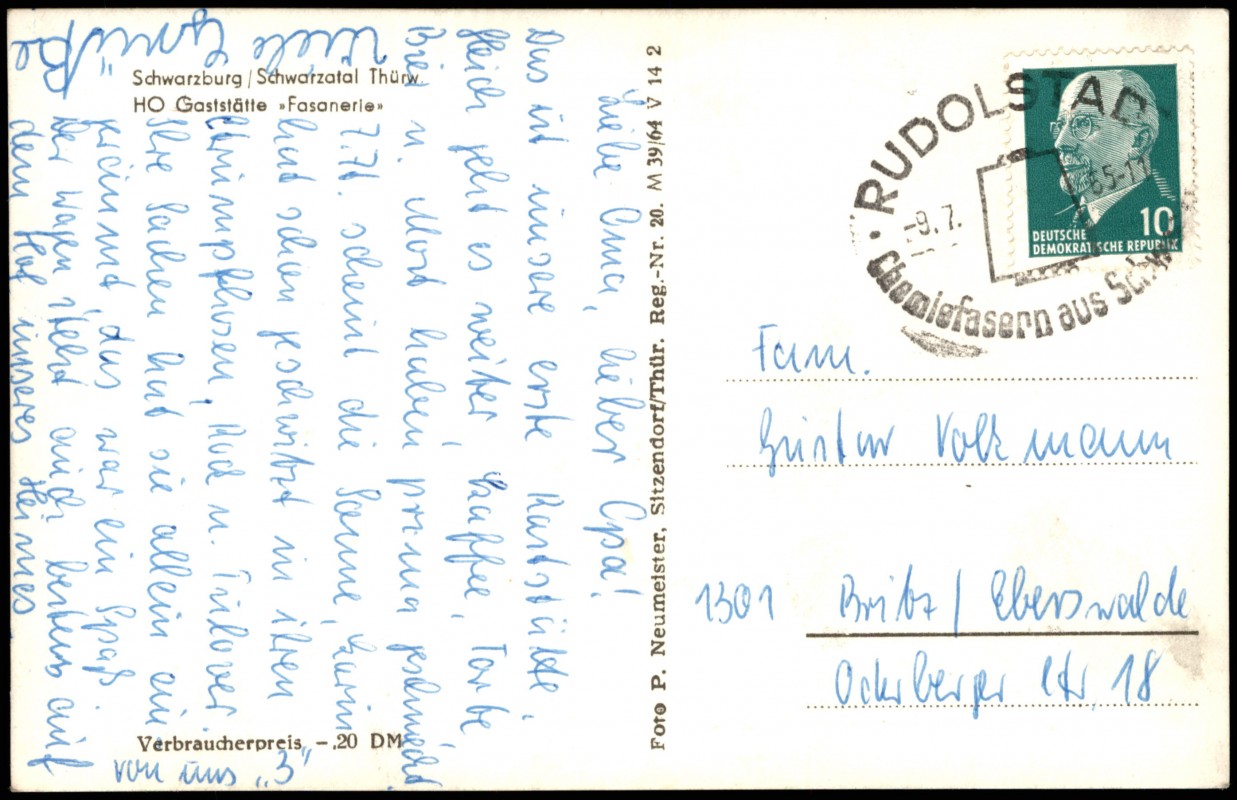 Schwarzburg/Schwarzatal Thürw.
HO Gaststätte »Fasanerie«
Liebe Oma, lieber Opa!
Das ist unsere erste Raststätte,
gleich geht es weiter, Kaffee, Torte
Bier u. Most haben prima geschmeckt
7.7. scheint die Sonne, Karin
hat schon geschwitzt in ihren
Strumpfhosen, Rock u. Pullover.
Ihre Sachen hat sie allein ein
geräumt, das war ein Spaß.
Der Wagen steht auch bestens auf
dem Hof unseres Heimes.
Viele Grüße
von uns „3"
Verbraucherpreis -,20 DM
Foto P. Neumeister, Sitzendorf/Thür. Reg.-Nr. 20. M 39/64 V 14 2
RUDOLSTADT
-9.7.65-11
Chemiefasern aus Schw
10
DEUTSCHE
DEMOKRATISCHE REPUBLIK
Fam.
Gustav Volkmann
1301 Britz/Eberswalde
Oderberger Str. 18